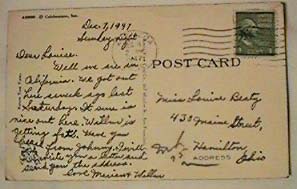 Dec. 7, 1947
Sunday night
Dear Louise,
Well we are in
California. We got out
here week ago last
Saturday. It sure is
nice out here. Wilbur is
getting fat. Have you
from Johnny. I will
write you a letter and
send you the address
Love Marion & Wilbur
POST CARD
Miss Louise Beaty
430 Maine Street,
Hamilton
ADDRESS
Ohio